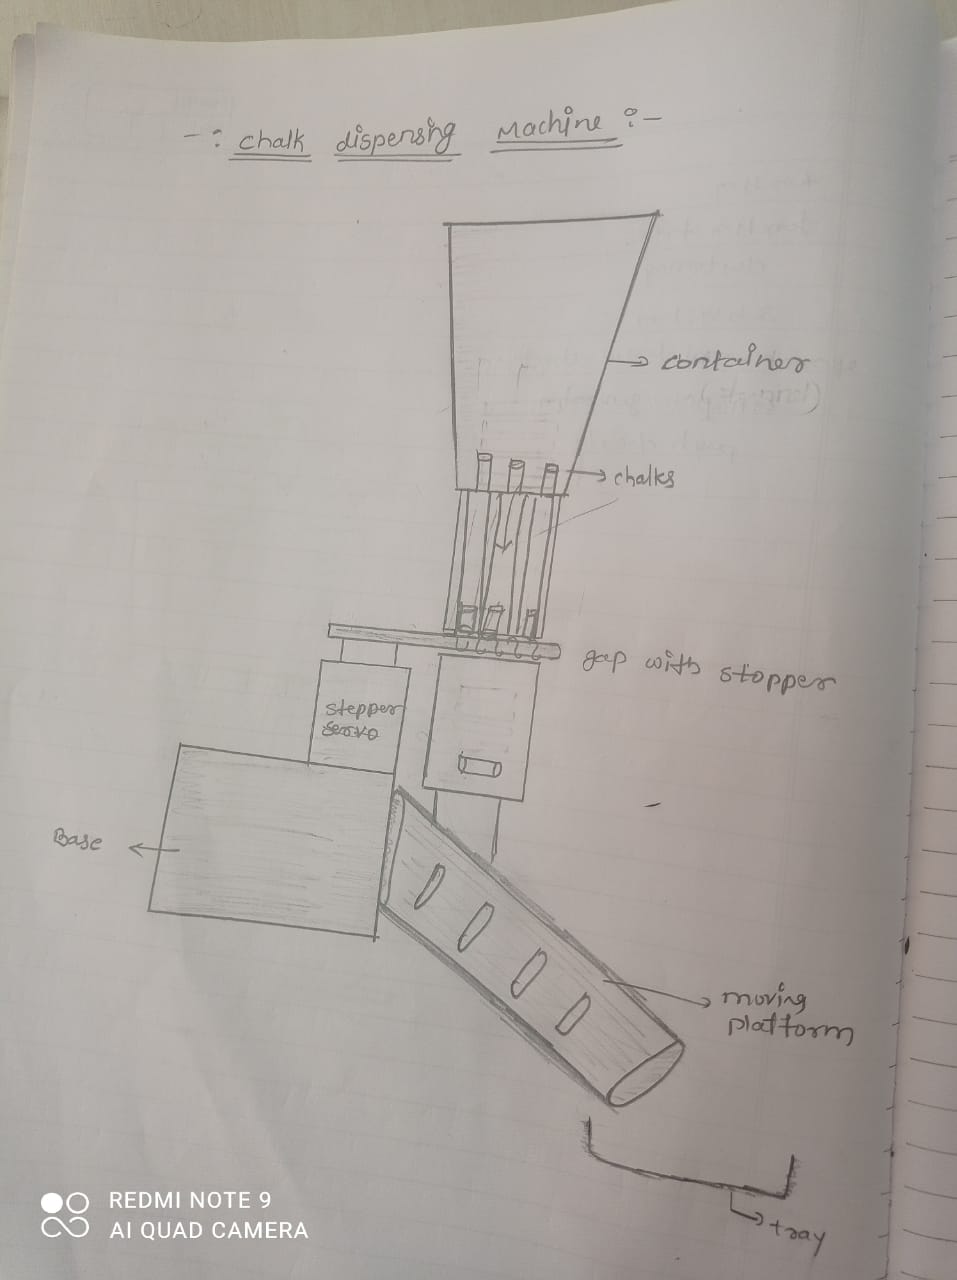 -: chalk dispensing Machine :-
container
chalks
gap with stopper
stepper
servo
Base
moving
platform
tray
REDMI NOTE 9
AI QUAD CAMERA